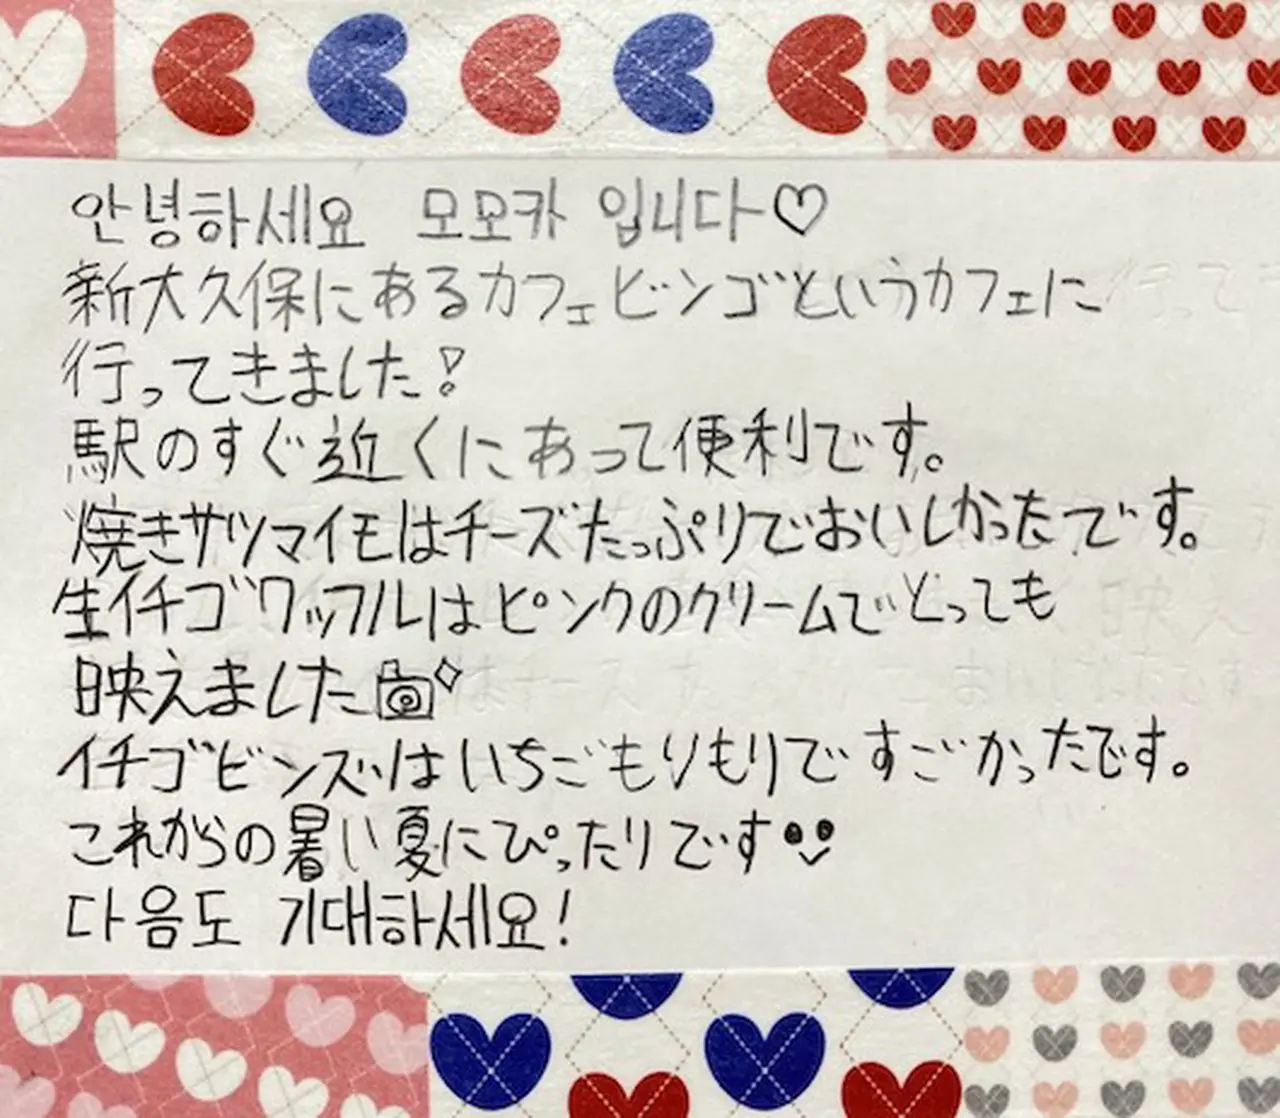 안녕하세요 모모카 입니다♡
新大久保にあるカフェビンゴというカフェに
行ってきました!
駅のすぐ近くにあって便利です。
焼きサツマイモはチーズたっぷりでおいしかったです。
生イチゴワッフルはピンクのクリームでとっても
映えました
イチゴビンズはいちごもりもりですごかったです。
これからの暑い夏にぴったりです
다음도 기대하세요!